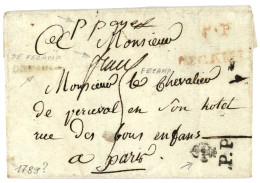 P P
Monsieur
DE FECAMP
FECAMP
Monsieur le Chevalier
de perceval en son hotel
rue des bons enfans
a paris
P.P.
1789?